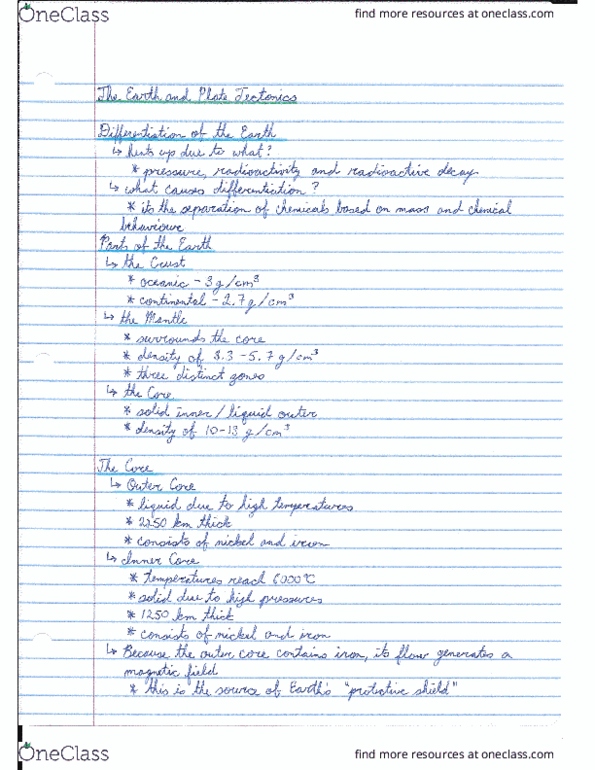 OneClass
find more resources at oneclass.com
The Earth and Plate Tectonics
Differentiation of the Earth
↳ heats up due to what?
* pressure, radioactivity and radioactive decay
↳ what causes differentiation?
* its the separation of chemicals based on mass and chemical
behaviour
Parts of the Earth
↳ the Crust
* oceanic - 3g/cm³
* continental - 2.7g/cm³
↳ the Mantle
* surrounds the core
* density of 3.3-5.7g/cm³
* three distinct zones
↳ the Core
* solid inner/liquid outer
* density of 10-13 g/cm³
The Core
↳ Outer Core
* liquid due to high temperatures
* 2250 km thick
* consists of nickel and iron
↳ Inner Core
* temperatures reach 6000°C
* solid due to high pressures
* 1250 km thick
* consists of nickel and iron
↳ Because the outer core contains iron, its flow generates a
magnetic field
* this is the source of Earth's "protective shield"
OneClass
find more resources at oneclass.com